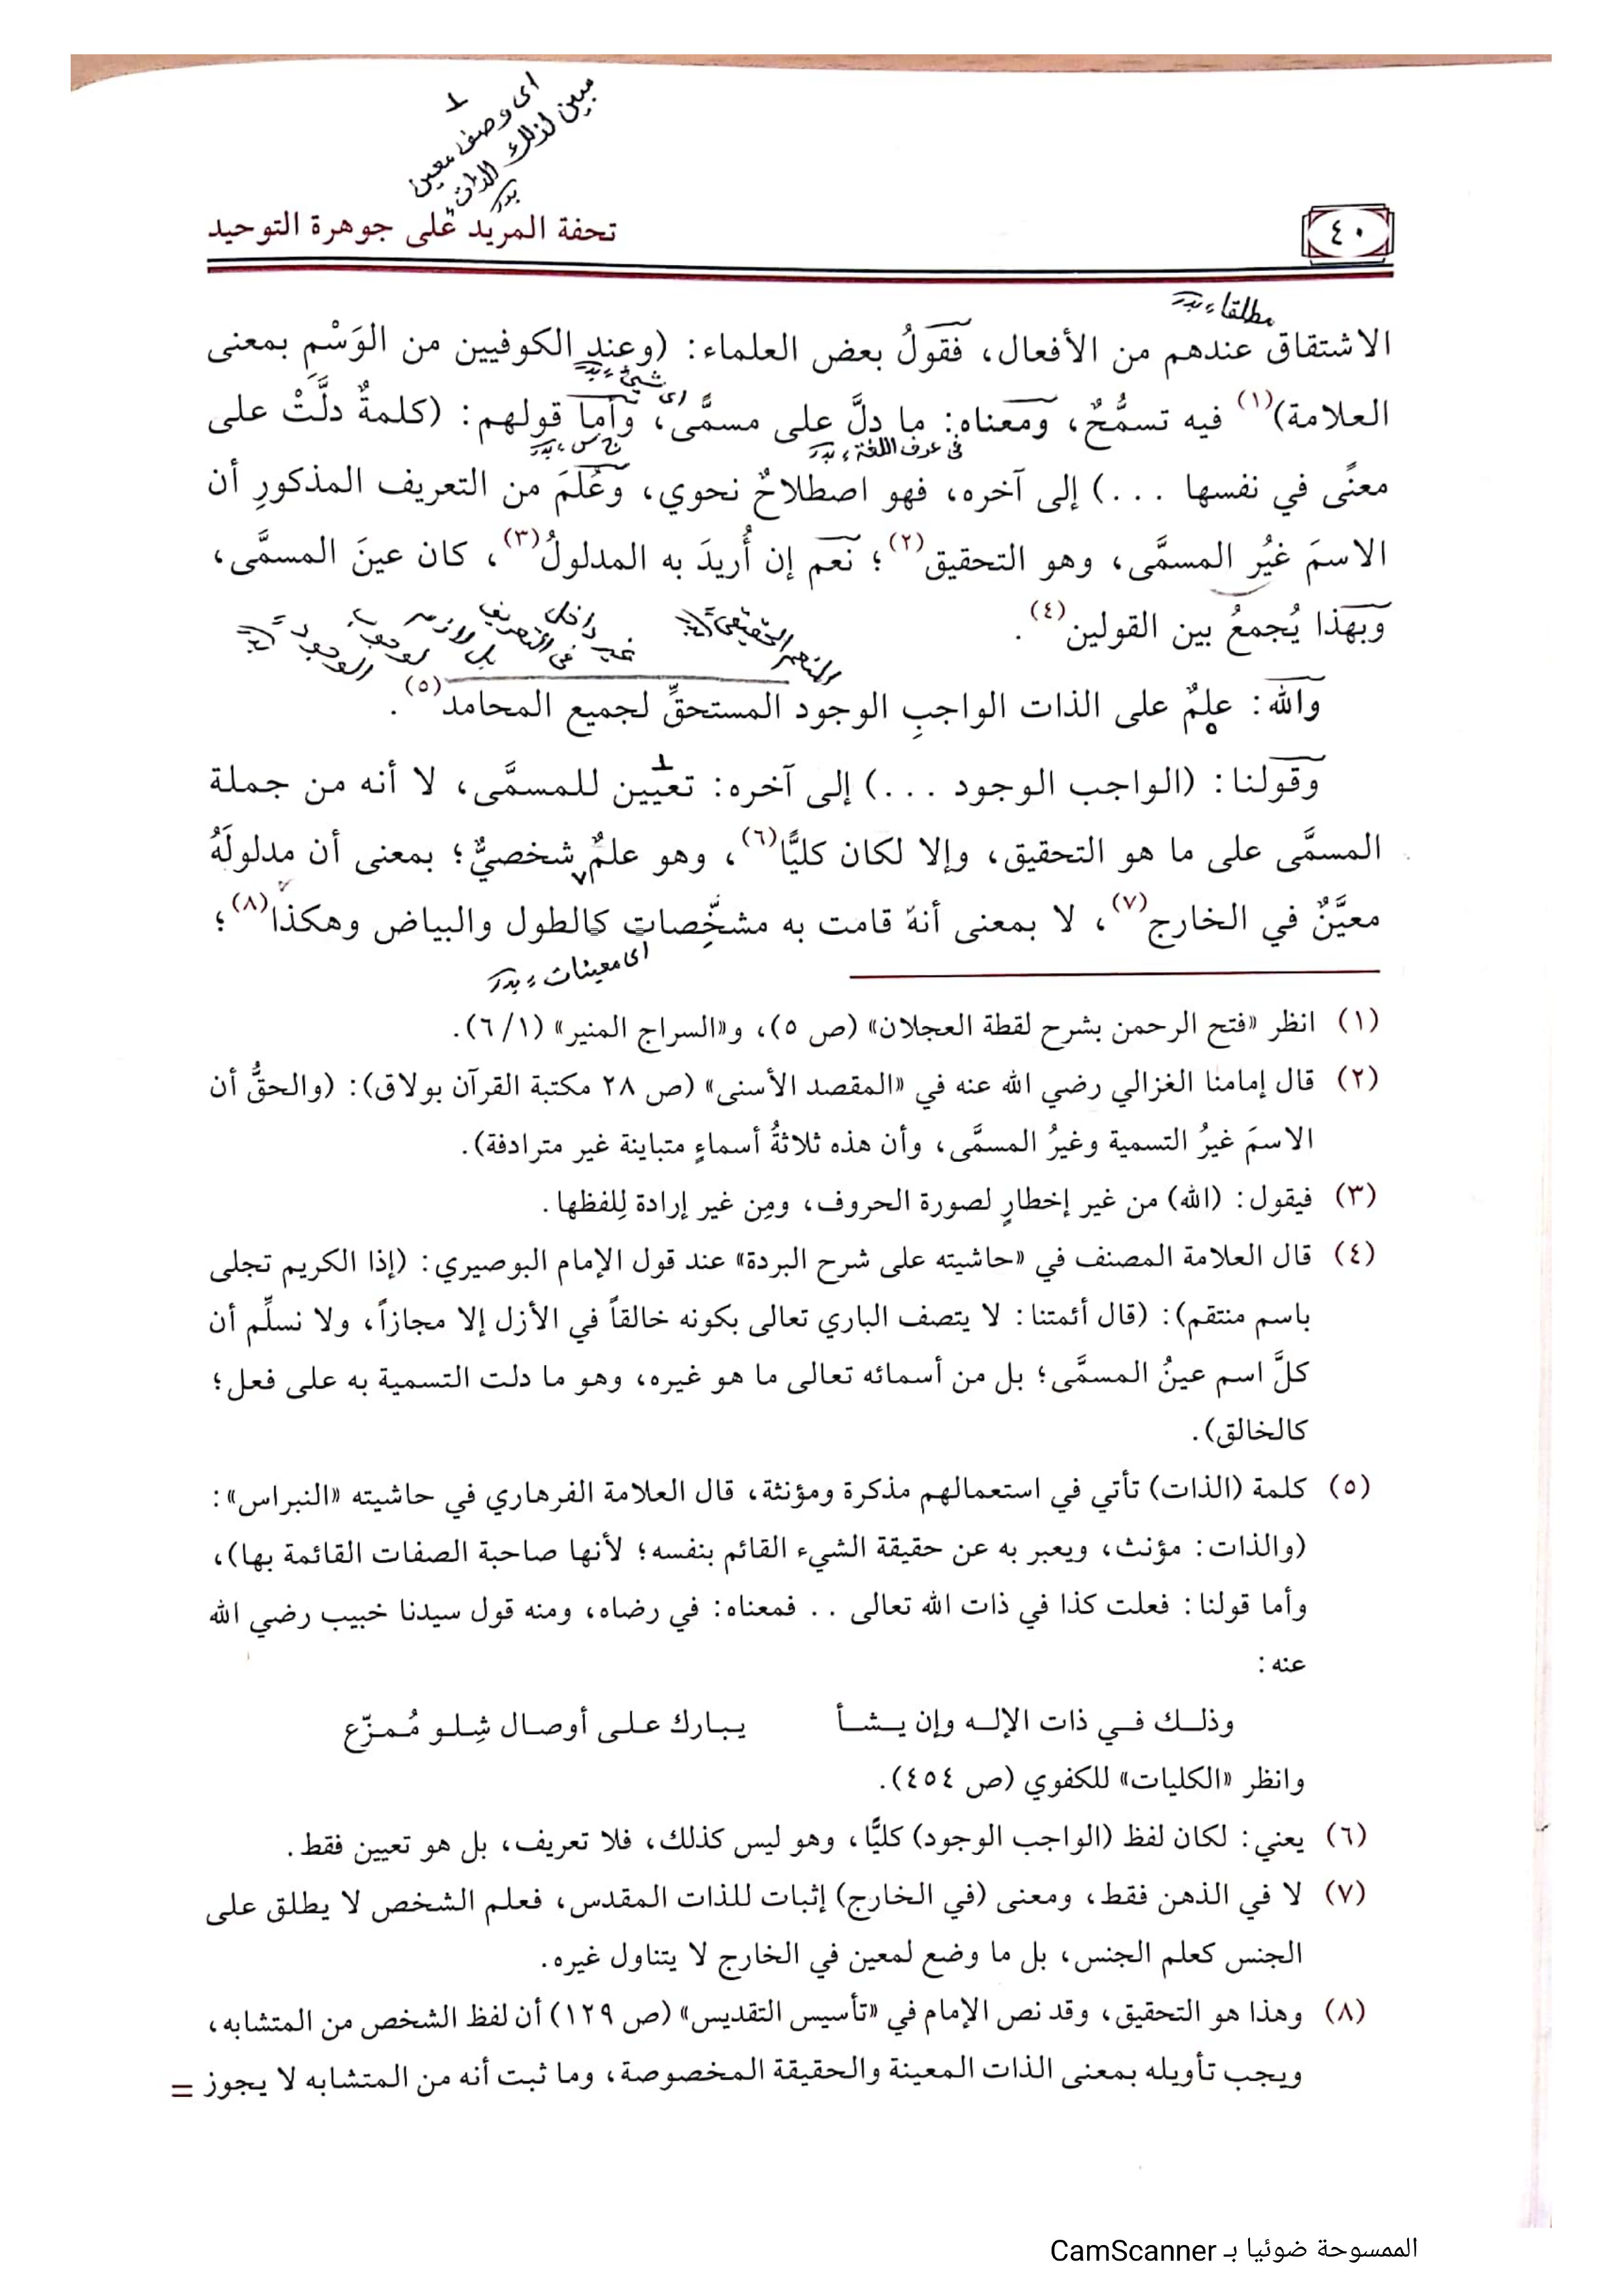 اى وصف معين
مبين لذلك الذات
بدر
٤٠
تحفة المريد على جوهرة التوحيد
مطلقا، بدر
الاشتقاق عندهم من الأفعال، فقولُ بعض العلماء: (وعند الكوفيين من الوَسْمِ بمعنى
اى شيئ، بدر
العلامة)(١) فيه تسمُّحٌ، ومعناه: ما دلَّ على مسمًّى، وأما قولهم: (كلمةٌ دلَّتْ على
فى عرف اللغة، بدر
معنًى في نفسها ...) إلى آخره، فهو اصطلاحٌ نحوي، وعُلمَ من التعريف المذكورِ أن
الاسمَ غيُر المسمَّى، وهو التحقيق(٢)؛ نَعم إن أُريدَ به المدلولُ(٣)، كان عينَ المسمَّى،
وبهذا يُجمعُ بين القولين(٤).
غير داخل
فى التعريف
بل لازم
لوجوب
الوجود
والله: علمٌ على الذات الواجبِ الوجود المستحقِّ لجميع المحامد(٥).
وقولنا: (الواجب الوجود ...) إلى آخره: تعيين للمسمَّى، لا أنه من جملة
المسمَّى على ما هو التحقيق، وإلا لكان كليًّا(٦)، وهو علمٌ شخصيٌّ؛ بمعنى أن مدلولَهُ
معيَّنٌ في الخارج(٧)، لا بمعنى أنهُ قامت به مشخِّصات كالطول والبياض وهكذا(٨)؛
اى معينات، بدر
(١) انظر «فتح الرحمن بشرح لقطة العجلان» (ص ٥)، و«السراج المنير» (٦/١).
(٢) قال إمامنا الغزالي رضي الله عنه في «المقصد الأسنى» (ص ٢٨ مكتبة القرآن بولاق): (والحقُّ أن
الاسمَ غيرُ التسمية وغيرُ المسمَّى، وأن هذه ثلاثةُ أسماءٍ متباينة غير مترادفة).
(٣) فيقول: (الله) من غير إخطارٍ لصورة الحروف، ومِن غير إرادة لِلفظها.
(٤) قال العلامة المصنف في «حاشيته على شرح البردة» عند قول الإمام البوصيري: (إذا الكريم تجلى
باسم منتقم): (قال أئمتنا: لا يتصف الباري تعالى بكونه خالقاً في الأزل إلا مجازاً، ولا نسلِّم أن
كلَّ اسم عينُ المسمَّى؛ بل من أسمائه تعالى ما هو غيره، وهو ما دلت التسمية به على فعل؛
كالخالق).
(٥) كلمة (الذات) تأتي في استعمالهم مذكرة ومؤنثة، قال العلامة الفرهاري في حاشيته «النبراس»:
(والذات: مؤنث، ويعبر به عن حقيقة الشيء القائم بنفسه؛ لأنها صاحبة الصفات القائمة بها)،
وأما قولنا: فعلت كذا في ذات الله تعالى .. فمعناه: في رضاه، ومنه قول سيدنا خبيب رضي الله
عنه:
وذلـك فـي ذات الإلـه وإن يـشـأ يـبارك عـلـى أوصـال شِلـو مُـمـزّع
وانظر «الكليات» للكفوي (ص ٤٥٤).
(٦) يعني: لكان لفظ (الواجب الوجود) كليًّا، وهو ليس كذلك، فلا تعريف، بل هو تعيين فقط.
(٧) لا في الذهن فقط، ومعنى (في الخارج) إثبات للذات المقدس، فعلم الشخص لا يطلق على
الجنس كعلم الجنس، بل ما وضع لمعين في الخارج لا يتناول غيره.
(٨) وهذا هو التحقيق، وقد نص الإمام في «تأسيس التقديس» (ص ١٢٩) أن لفظ الشخص من المتشابه،
ويجب تأويله بمعنى الذات المعينة والحقيقة المخصوصة، وما ثبت أنه من المتشابه لا يجوز =
الممسوحة ضوئيا بـ CamScanner